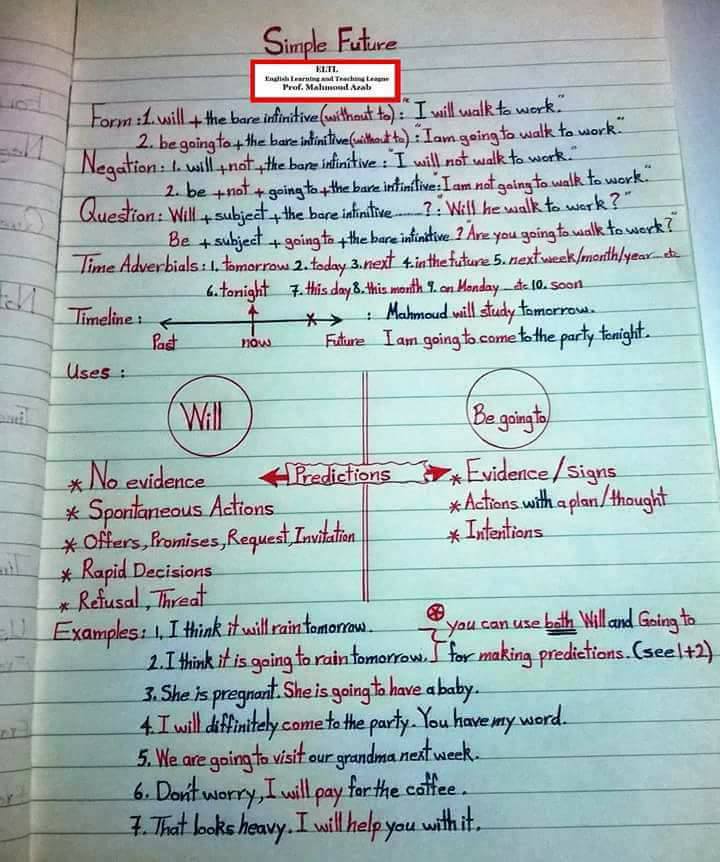 Simple Future
ELTL
English Learning and Teaching League
Prof. Mahmoud Azab
Form: 1. will + the bare infinitive (without to) : "I will walk to work."
2. be going to + the bare infinitive (without to) : "I am going to walk to work."
Negation: 1. will + not + the bare infinitive : "I will not walk to work."
2. be + not + going to + the bare infinitive: I am not going to walk to work."
Question: Will + subject + the bare infinitive ........? : "Will he walk to work?"
Be + subject + going to + the bare infinitive ? "Are you going to walk to work?"
Time Adverbials: 1. tomorrow 2. today 3. next 4. in the future 5. next week/month/year... etc
6. tonight 7. this day 8. this month 9. on Monday ... etc 10. soon
Timeline: Past now Future : Mahmoud will study tomorrow.
I am going to come to the party tonight.
Uses :
Will Be going to
Predictions
* No evidence * Evidence/Signs
* Spontaneous Actions * Actions with a plan/thought
* Offers, Promises, Request, Invitation * Intentions
* Rapid Decisions
* Refusal, Threat
Examples: 1. I think it will rain tomorrow. you can use both Will and Going to
2. I think it is going to rain tomorrow. for making predictions. (see 1+2)
3. She is pregnant. She is going to have a baby.
4. I will diffinitely come to the party. You have my word.
5. We are going to visit our grandma next week.
6. Don't worry, I will pay for the coffee.
7. That looks heavy. I will help you with it.